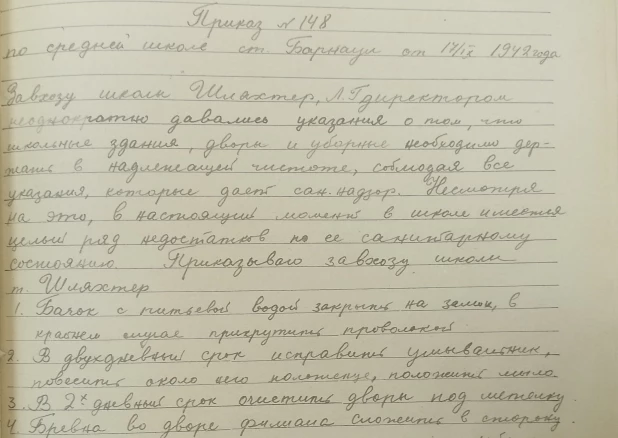 Приказ № 148
по средней школе ст. Барнаул от 17/IX 1942 года
Завхозу школы Шляхтер, Л.Г директором
неоднократно давались указания о том, что
школьные здания, дворы и уборные необходимо дер-
жать в надлежащей чистоте, соблюдая все
указания, которые дает сан. надзор. Несмотря
на это, в настоящий момент в школе имеется
целый ряд недостатков по ее санитарному
состоянию. Приказываю завхозу школы
т. Шляхтер
1. Бачок с питьевой водой закрыть на замок, в
крайнем случае прикрутить проволокой.
2. В двухдневный срок исправить умывальник,
повесить около него полотенце, положить мыло
3. В 2х дневный срок очистить дворы под метелку.
4. Бревна во дворе филиала сложить в сторону.